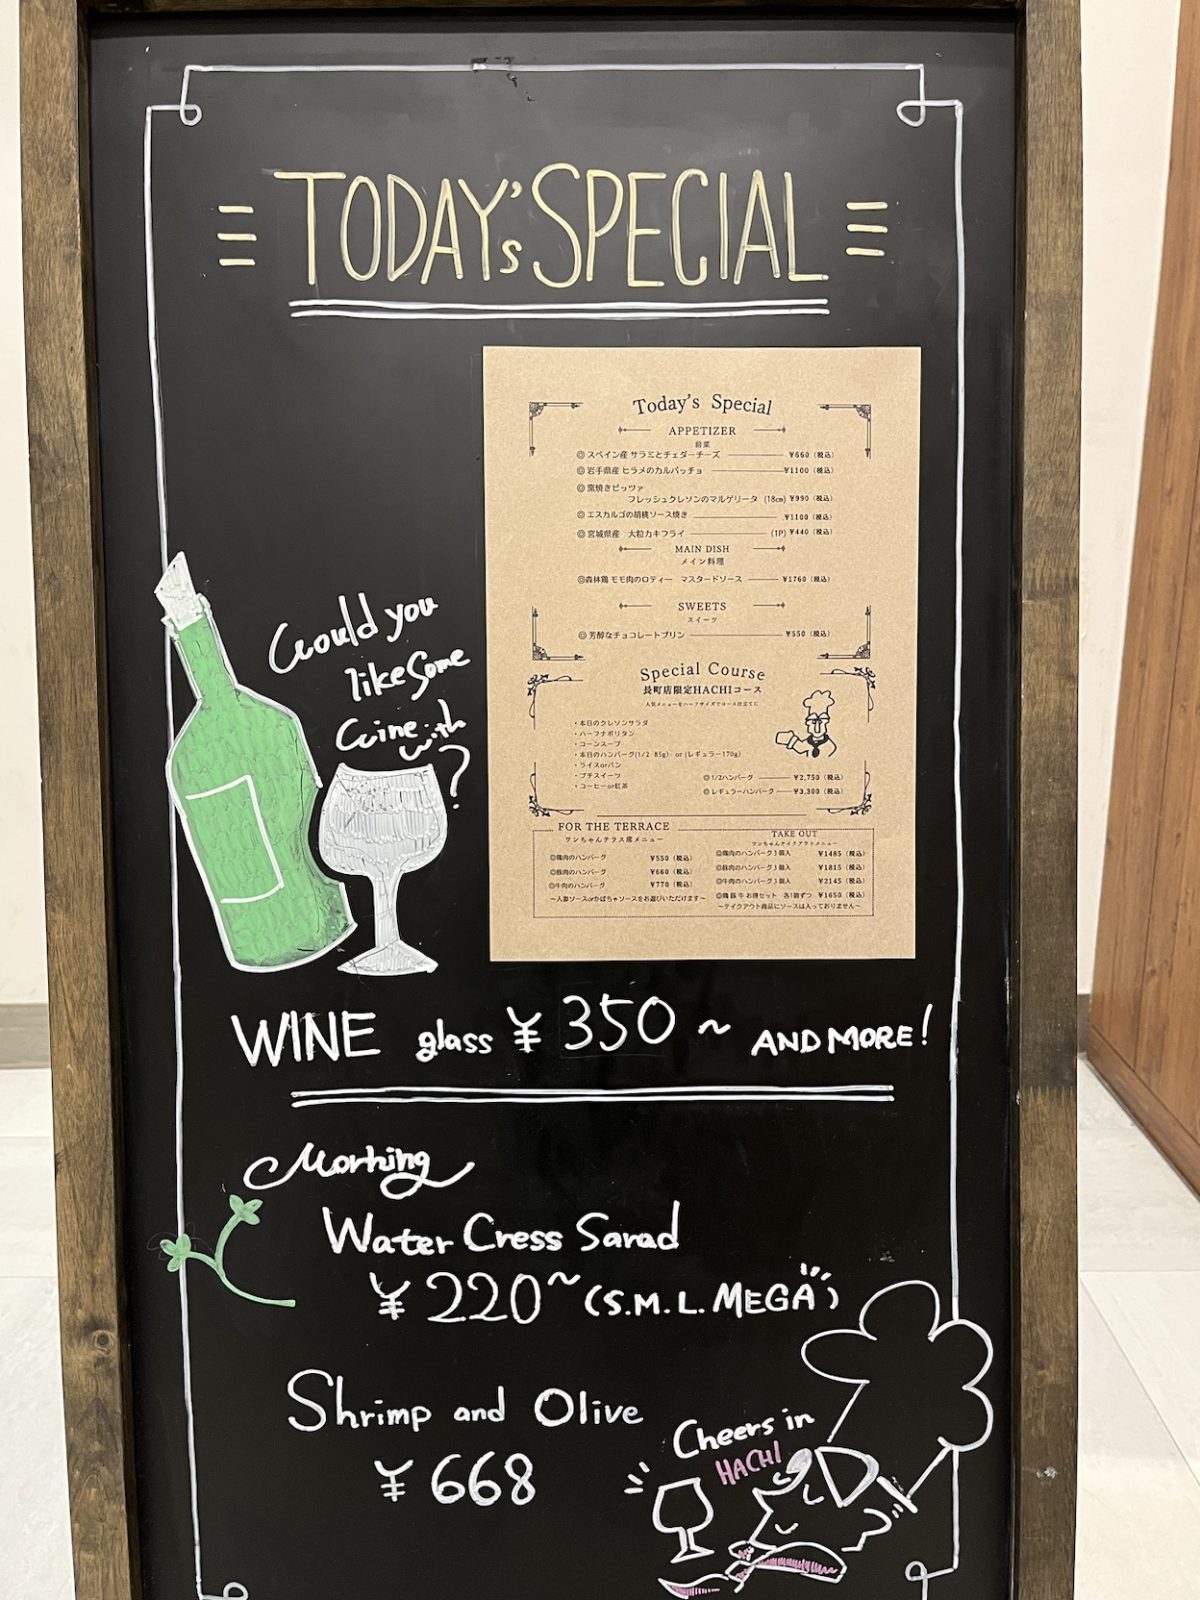 TODAY's SPECIAL
Today's Special
APPETIZER
前菜
◎スペイン産 サラミとチェダーチーズ ¥660(税込)
◎岩手県産 ヒラメのカルパッチョ ¥1100(税込)
◎窯焼きピッツァ
フレッシュクレソンのマルゲリータ (18cm) ¥990(税込)
◎エスカルゴの胡桃ソース焼き ¥1100(税込)
◎宮城県産 大粒カキフライ (1P) ¥440(税込)
MAIN DISH
メイン料理
◎森林鶏 モモ肉のロティー マスタードソース ¥1760(税込)
SWEETS
スイーツ
◎芳醇なチョコレートプリン ¥550(税込)
Special Course
長町店限定HACHIコース
人気メニューをハーフサイズでコース仕立てに
・本日のクレソンサラダ
・ハーフナポリタン
・コーンスープ
・本日のハンバーグ(1/2 85g) or (レギュラー170g)
・ライスorパン
・プチスイーツ
・コーヒーor紅茶
◎1/2ハンバーグ ¥2,750(税込)
◎レギュラーハンバーグ ¥3,300(税込)
FOR THE TERRACE
ワンちゃんテラス席メニュー
◎鶏肉のハンバーグ ¥550(税込)
◎豚肉のハンバーグ ¥660(税込)
◎牛肉のハンバーグ ¥770(税込)
～人参ソースorかぼちゃソースをお選びいただけます～
TAKE OUT
ワンちゃんテイクアウトメニュー
◎鶏肉のハンバーグ3個入 ¥1485(税込)
◎豚肉のハンバーグ3個入 ¥1815(税込)
◎牛肉のハンバーグ3個入 ¥2145(税込)
◎鶏 豚 牛 お得セット 各1個ずつ ¥1650(税込)
～テイクアウト商品にソースは入っておりません～
Would you
like Some
wine with
?
WINE glass ¥350～ AND MORE!
Morning
Water Cress Sarad
¥220～(S.M.L.MEGA)
Shrimp and Olive
¥668
Cheers in
HACHI